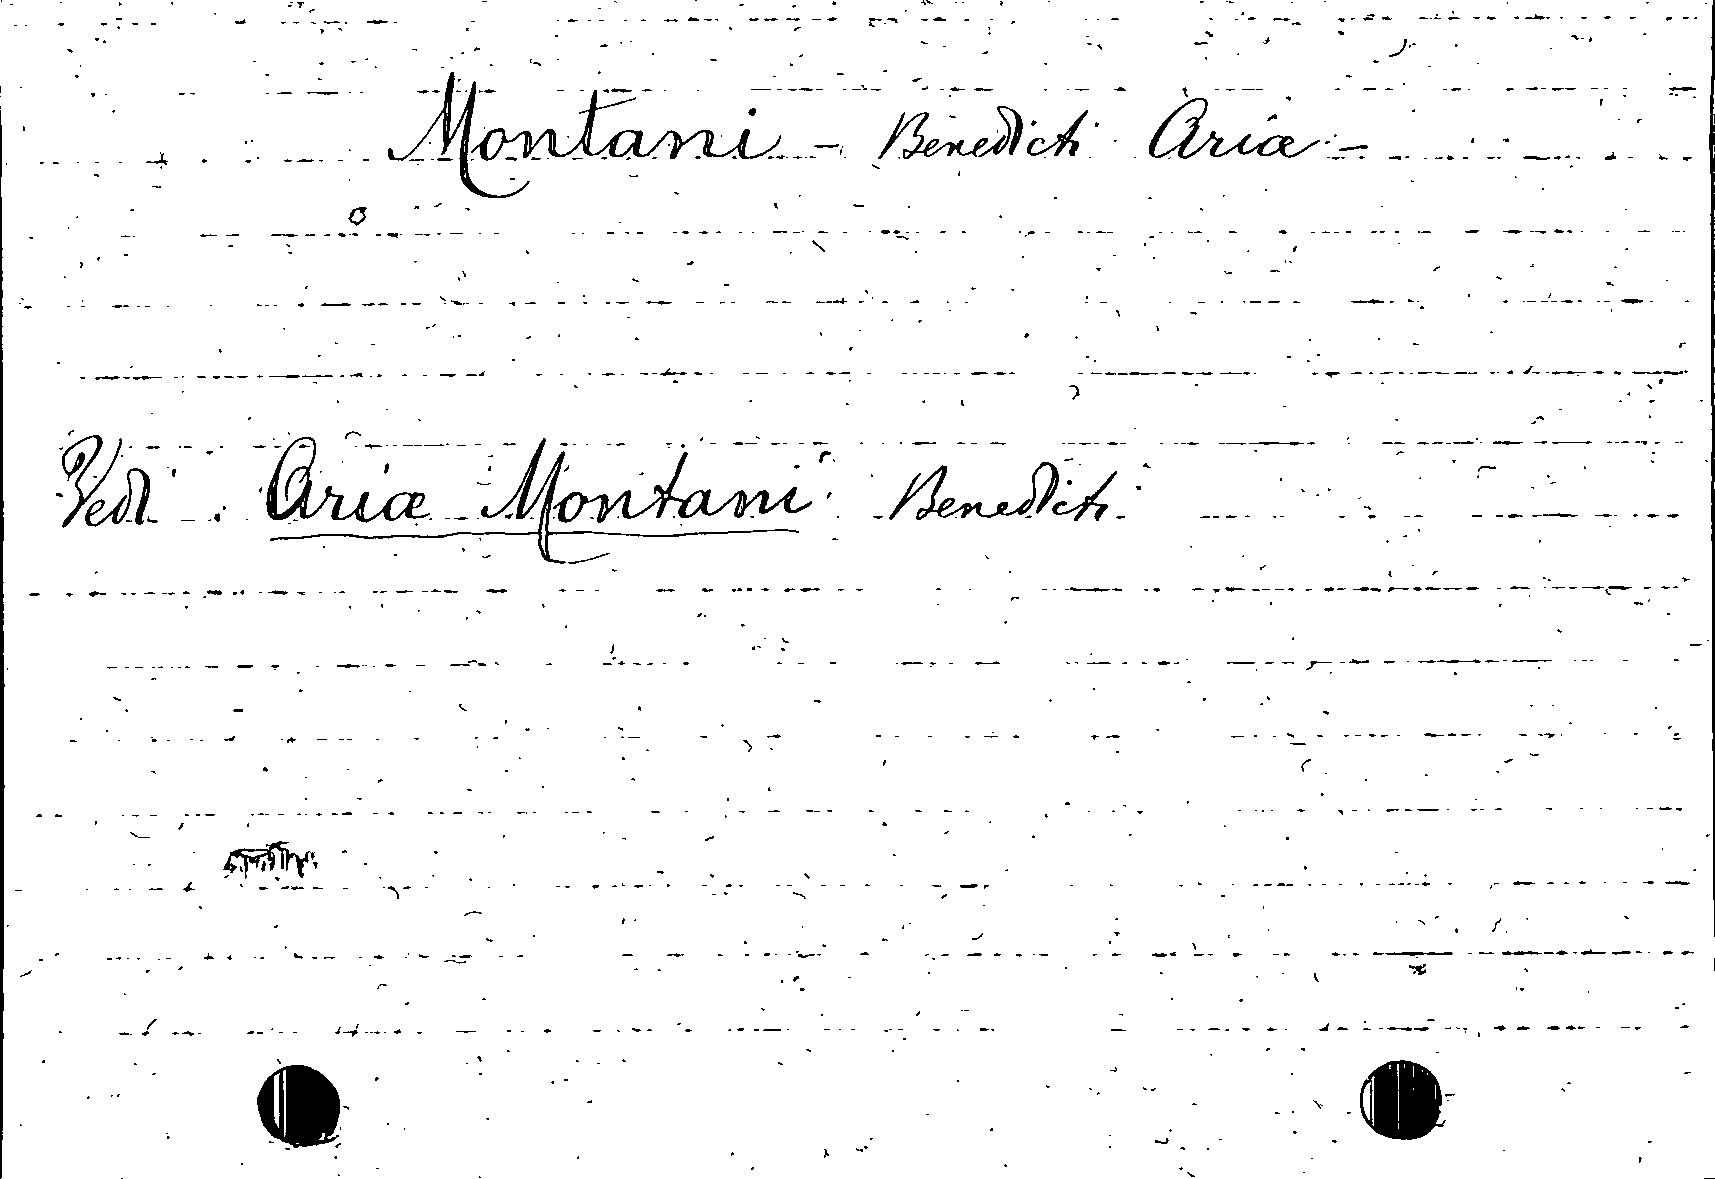 Montani - Benedicti Ariæ -
Vedi : Ariæ Montani Benedicti